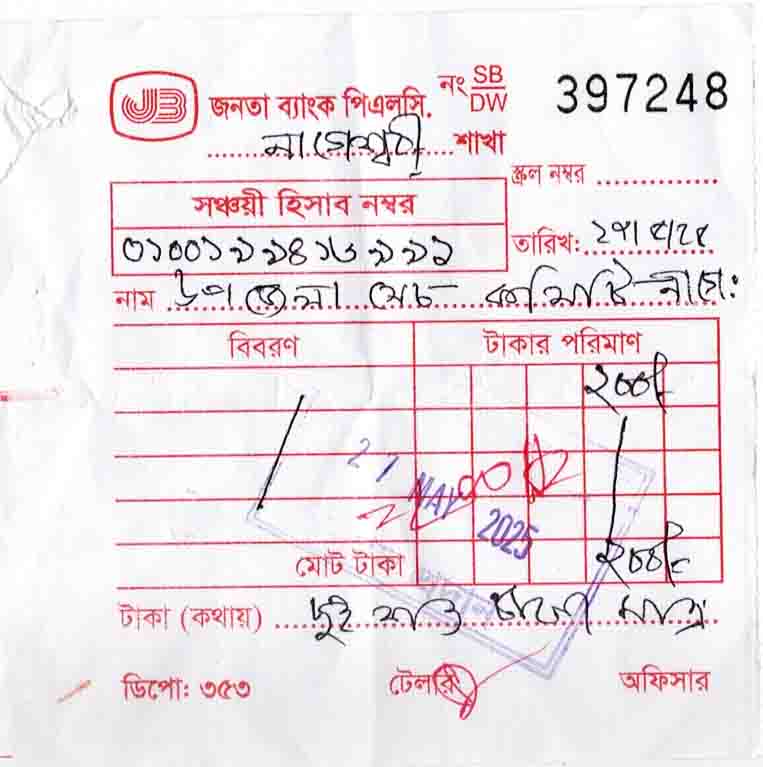 JB জনতা ব্যাংক পিএলসি. নং SB/DW 397248
নাগেশ্বরী শাখা
স্ক্রল নম্বর
সঞ্চয়ী হিসাব নম্বর
০১০০১৯৯৪১৬৯৯১
তারিখ: ২৭/৫/২৫
নাম উপজেলা সেচ কমিটি-নাগে:
বিবরণ টাকার পরিমাণ
২০০/-
27 MAY 2025
মোট টাকা ২০০/-
টাকা (কথায়) দুই শত টাকা মাত্র
ডিপো: ৩৫৩ টেলার অফিসার